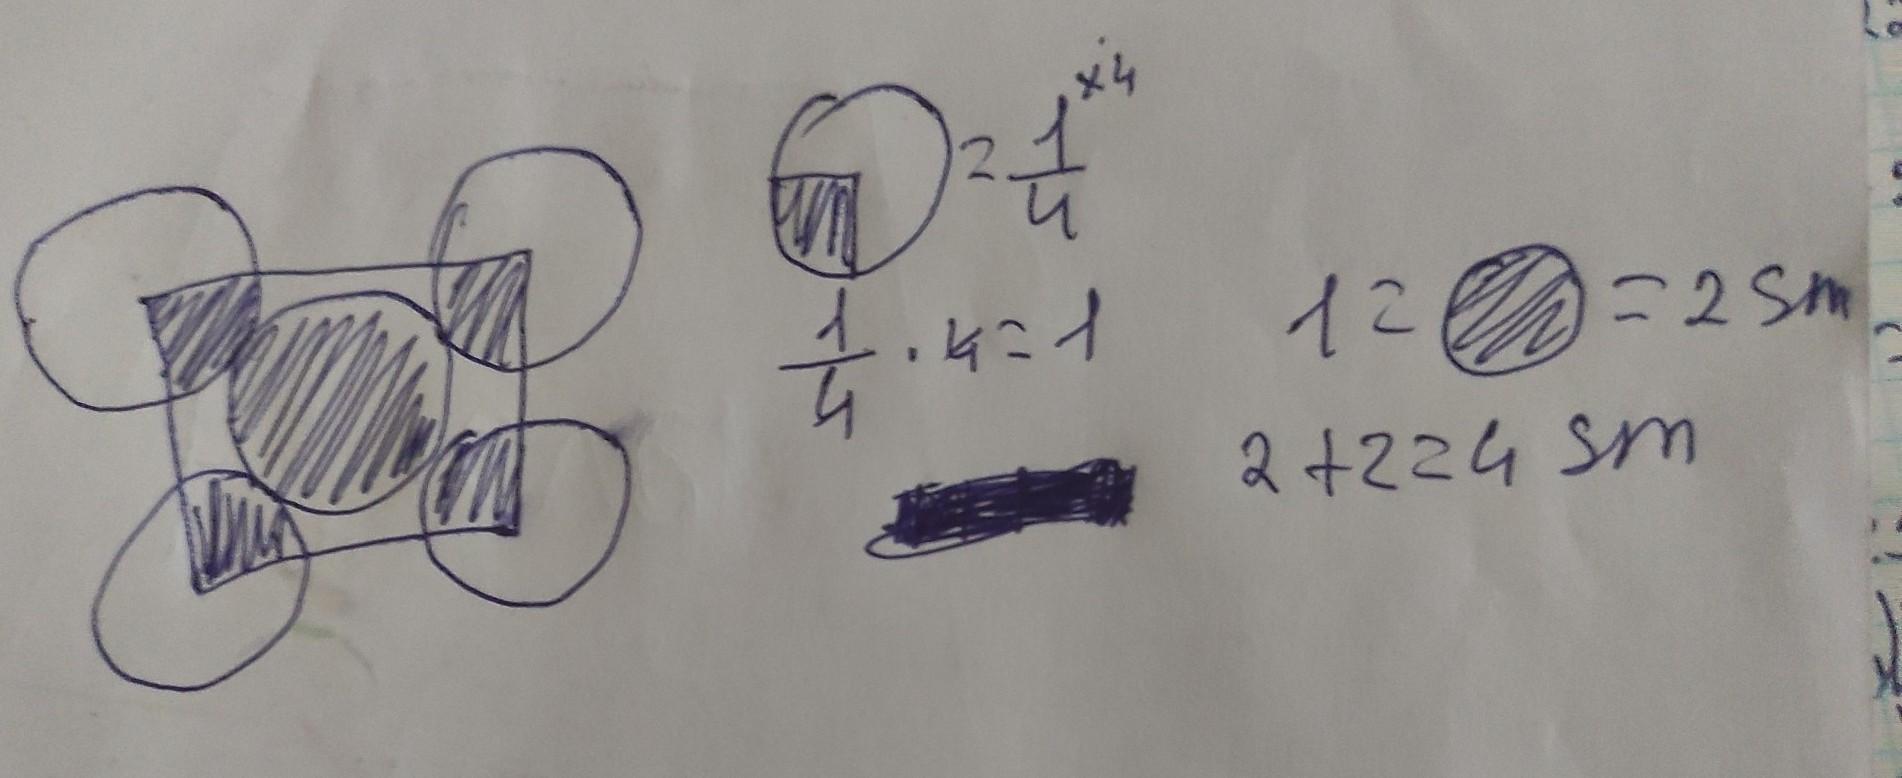 = 1/4 ×4
1/4 · 4 = 1
1 = = 2 sm
2 + 2 = 4 sm